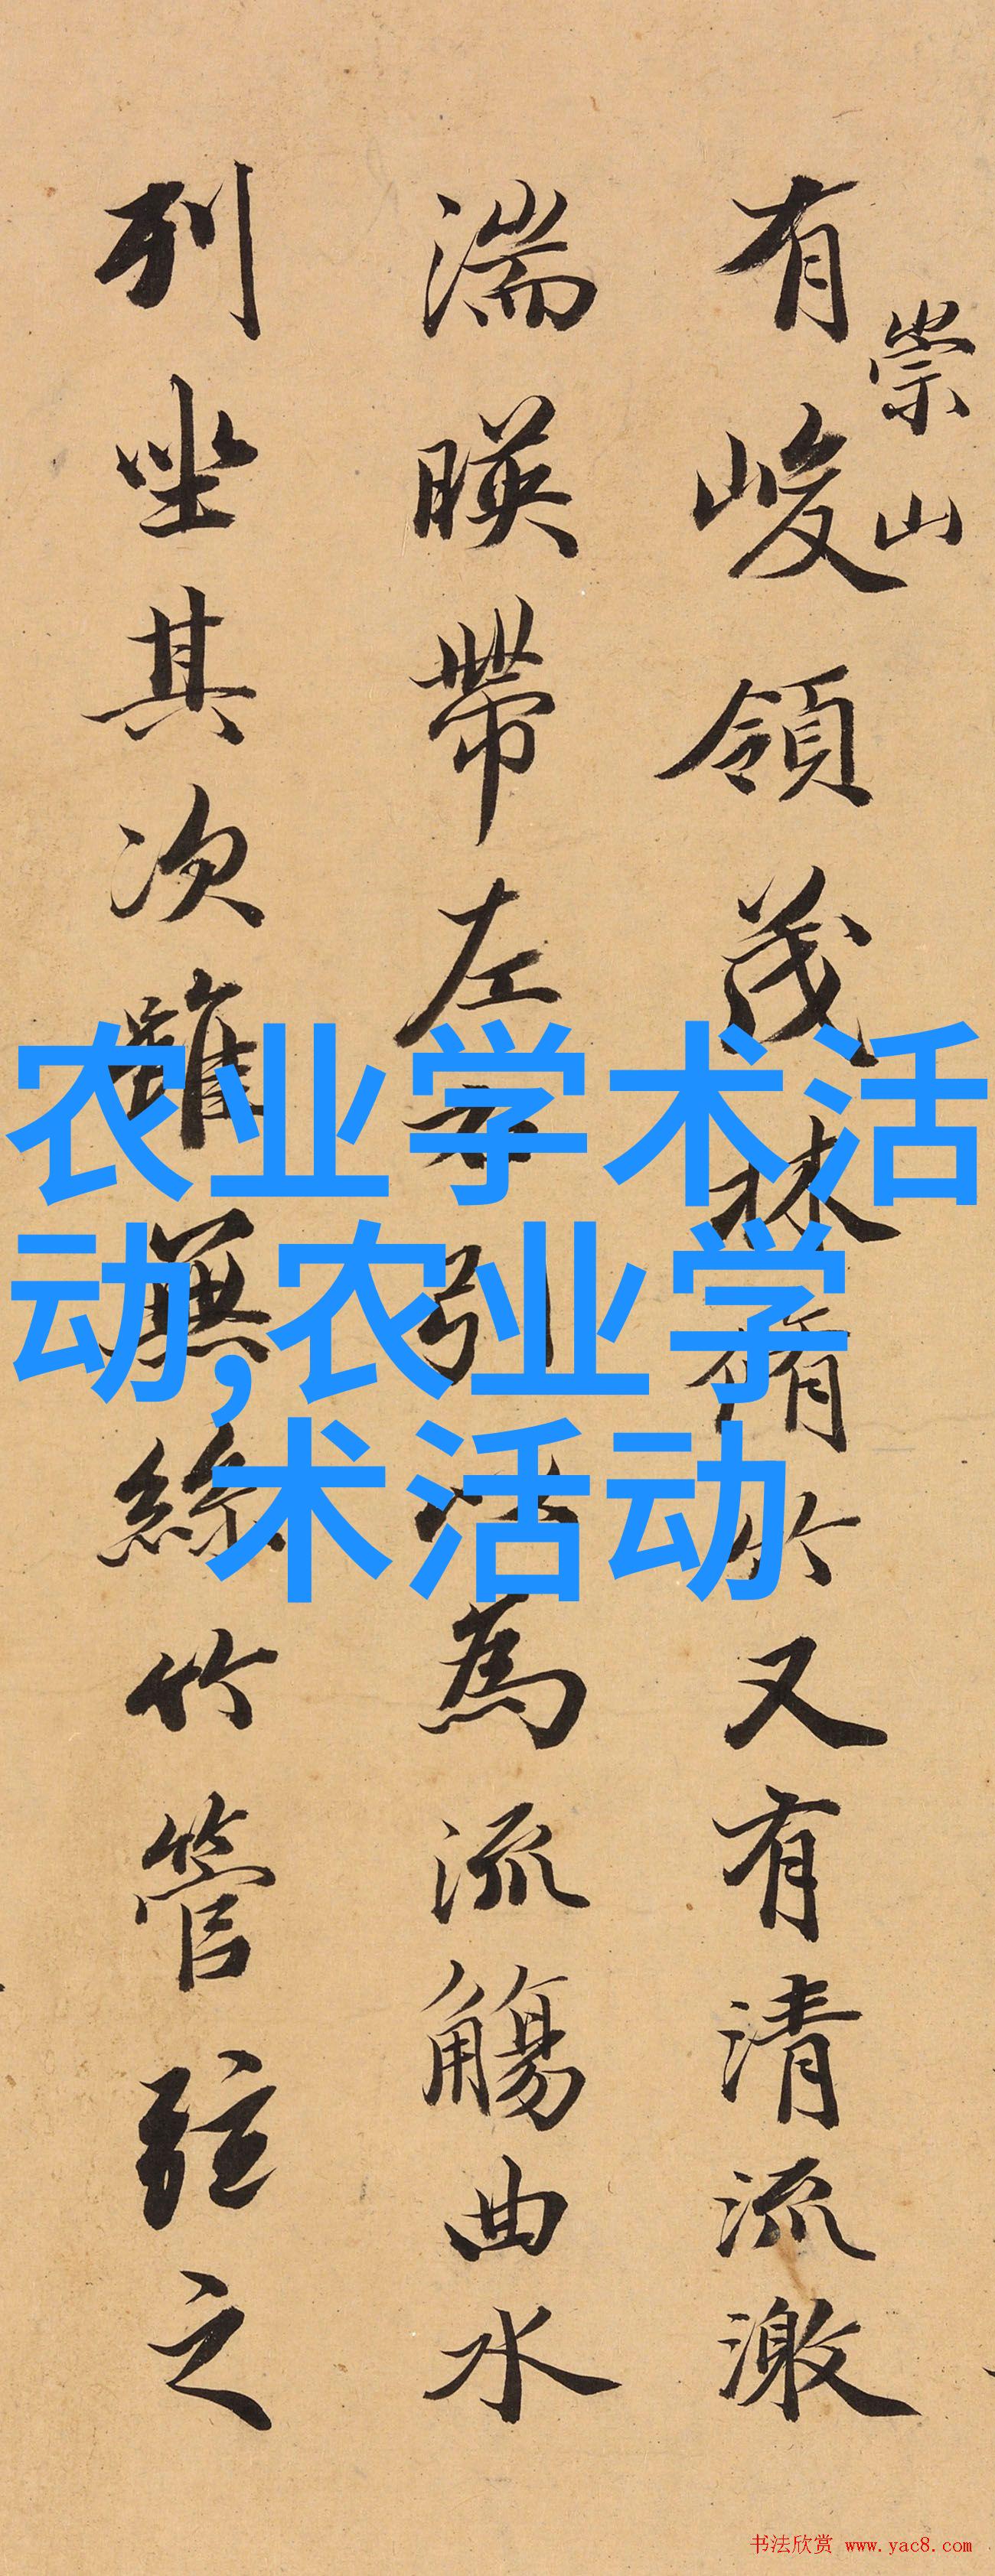 有峻領茂林脩竹又有清流激
崇山
湍暎帶左右引以為流觴曲水
列坐其次雖無絲竹管弦之
农业学术活
动,农业学
术活动
书法欣赏 www.yac8.com